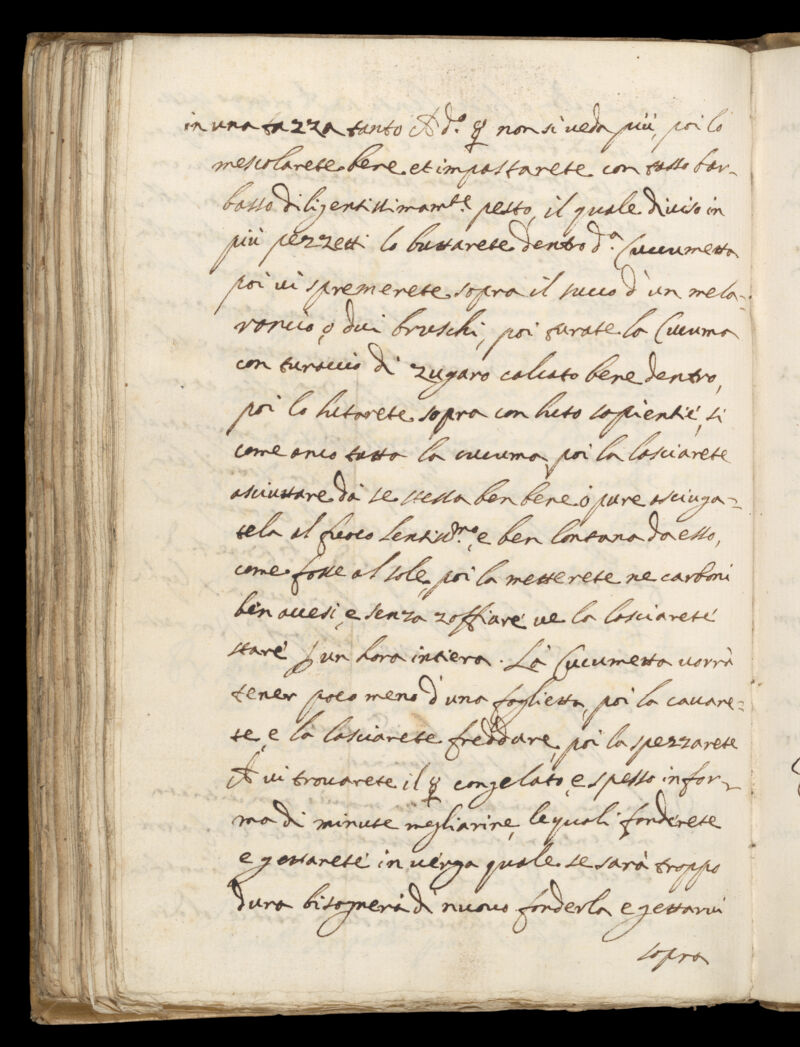 in una tazza tanto che d.º ☿ non si veda più, poi lo
mescolarete bene et impastarete con tasso bar-
basso diligentissimam.te pesto, il quale diviso in
più pezzetti lo buttarete dentro d.ª Cucumetta
poi vi spremerete sopra il succo d'un mela-
rancio, ò dui bruschi, poi turate la Cucuma
con turaccio di zugaro calcato bene dentro,
poi lo lutarete sopra con luto sapientiè, si
come anco tutta la cucuma, poi la lasciarete
asciuttare da se stessa ben bene, ò pure asciuga-
tela al fuoco lentiss.mo, e ben lontana da esso,
come fosse al sole, poi la metterete ne carboni
ben accesi, e senza zoffiare ve la lasciarete
stare un hora intiera. La Cucumetta vorrà
tener poco meno d'una foglietta, poi la cavare-
te, e la lasciarete freddare, poi la spezzarete
che vi trovarete il ☿ congelato, e spesso in for-
ma di minute megliarine, le quali fonderete
e gettarete in verga quale se sarà troppo
dura bisognerà di nuovo fonderla e gettarvi
sopra